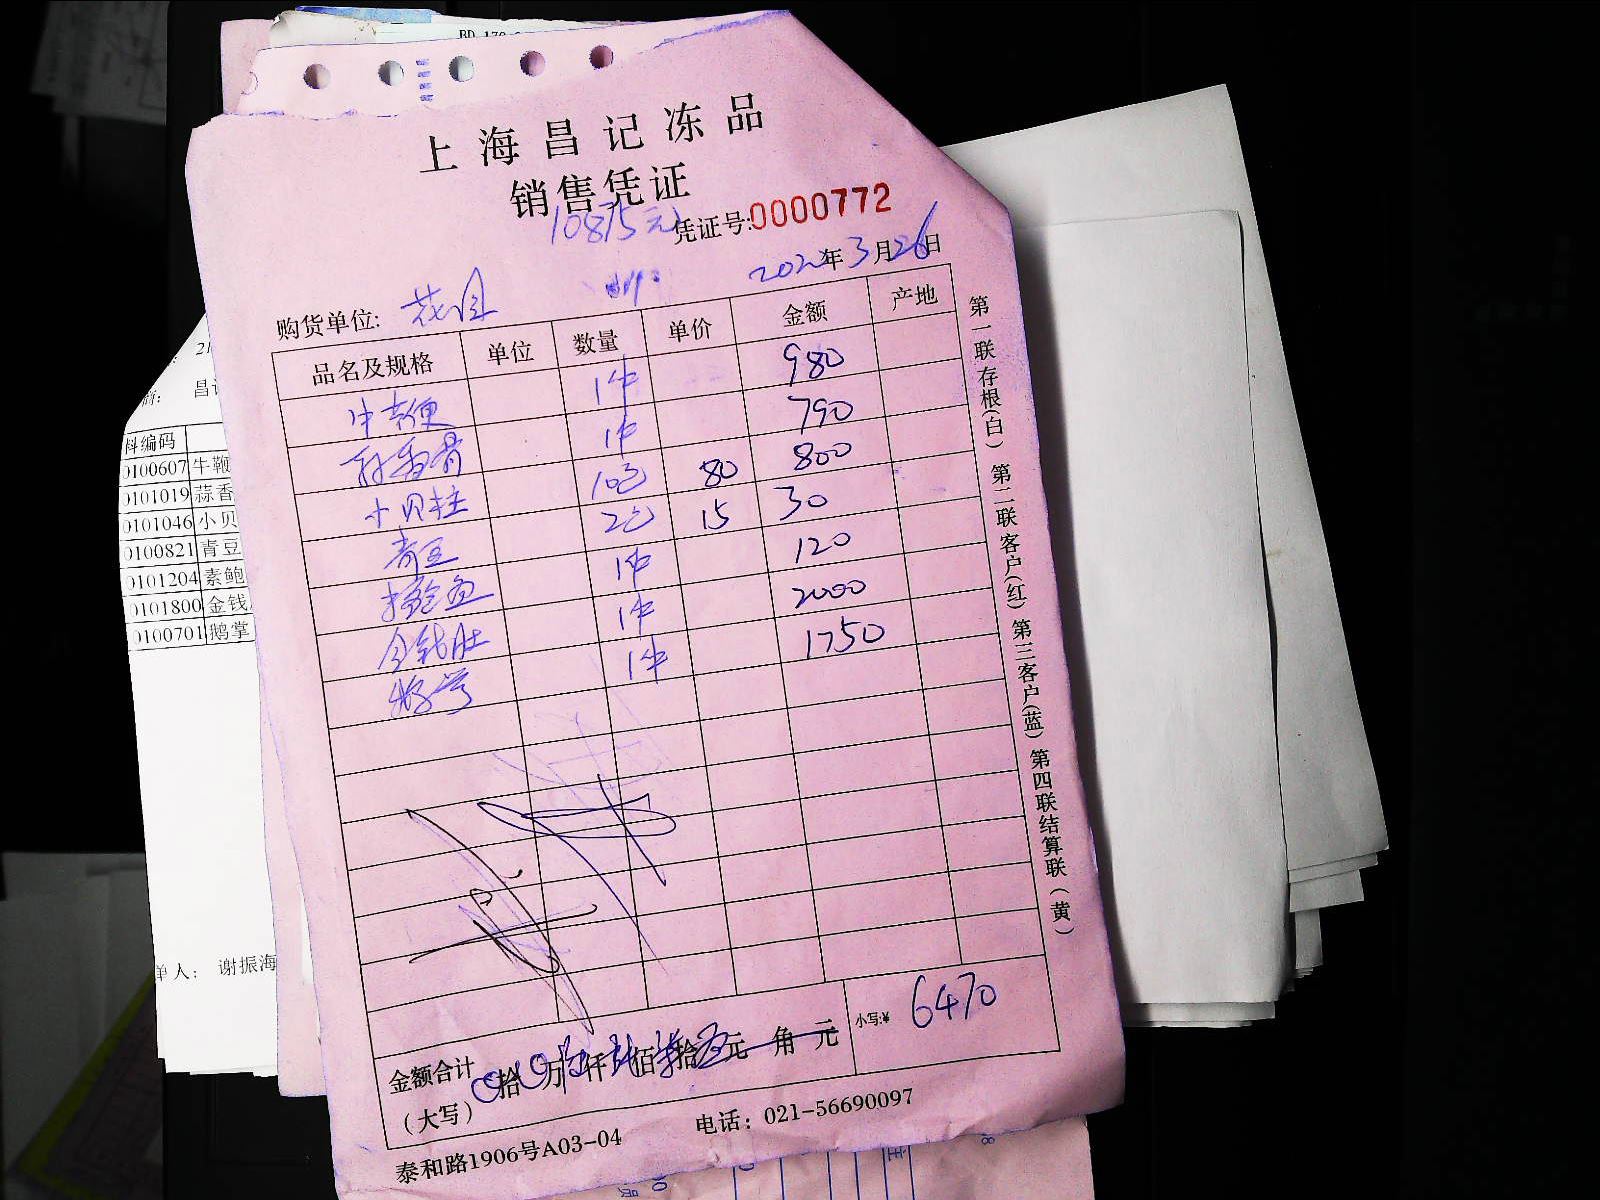 上海昌记冻品
销售凭证
10875元
凭证号:0000772
2022年3月26日
购货单位:
品名及规格 单位 数量 单价 金额 产地
1件 980
1件 790
小贝柱 10包 80 800
青豆 2包 15 30
1件 120
金钱肚 1件 2000
1件 1750
金额合计 拾 万 仟 佰 拾 元 角 元
(大写)
小写:¥ 6470
泰和路1906号A03-04 电话：021-56690097
第一联存根(白) 第二联客户(红) 第三客户(蓝) 第四联结算联(黄)
料编码
0100607 牛鞭
0101019 蒜香
0101046 小贝
0100821 青豆
0101204 素鲍
0101800 金钱
0100701 鹅掌
单人： 谢振海